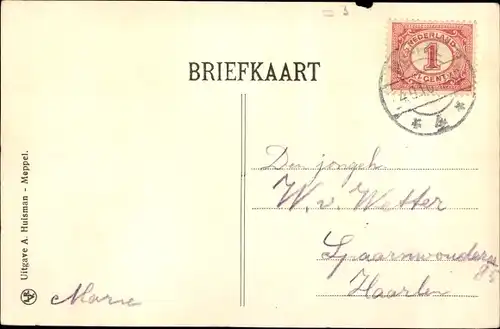 BRIEFKAART
NEDERLAND
1
CENT
4
Den jongeh
W. v. Wetter
Spaarnwouder
85
Haarlem
Marie
Uitgave A. Huisman - Meppel.